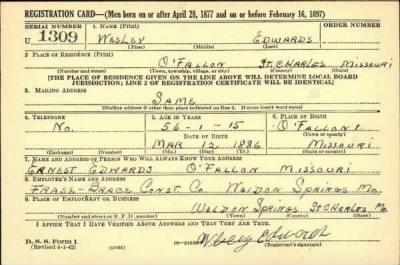 REGISTRATION CARD—(Men born on or after April 28, 1877 and on or before February 16, 1897)
SERIAL NUMBER 1. NAME (Print) ORDER NUMBER
U 1309 WESLEY EDWARDS
(First) (Middle) (Last)
2. PLACE OF RESIDENCE (Print)
O'FALLON ST. CHARLES MISSOURI
(Number and street) (Town, township, village, or city) (County) (State)
[THE PLACE OF RESIDENCE GIVEN ON THE LINE ABOVE WILL DETERMINE LOCAL BOARD
JURISDICTION; LINE 2 OF REGISTRATION CERTIFICATE WILL BE IDENTICAL]
3. MAILING ADDRESS
SAME
[Mailing address if other than place indicated on line 2. If same insert word same]
4. TELEPHONE 5. AGE IN YEARS 6. PLACE OF BIRTH
No. 56-1-15 O'FALLON
DATE OF BIRTH (Town or county)
MAR 12 1886 MISSOURI
(Exchange) (Number) (Mo.) (Day) (Yr.) (State or country)
7. NAME AND ADDRESS OF PERSON WHO WILL ALWAYS KNOW YOUR ADDRESS
ERNEST EDWARDS O'FALLON MISSOURI
8. EMPLOYER'S NAME AND ADDRESS
CONST. CO. WELDON SPRINGS MO.
9. PLACE OF EMPLOYMENT OR BUSINESS
WELDON SPRINGS ST CHARLES MO
(Number and street or R. F. D. number) (Town) (County) (State)
I AFFIRM THAT I HAVE VERIFIED ABOVE ANSWERS AND THAT THEY ARE TRUE.
D. S. S. Form 1
(Revised 4-1-42) (over) (Registrant's signature)